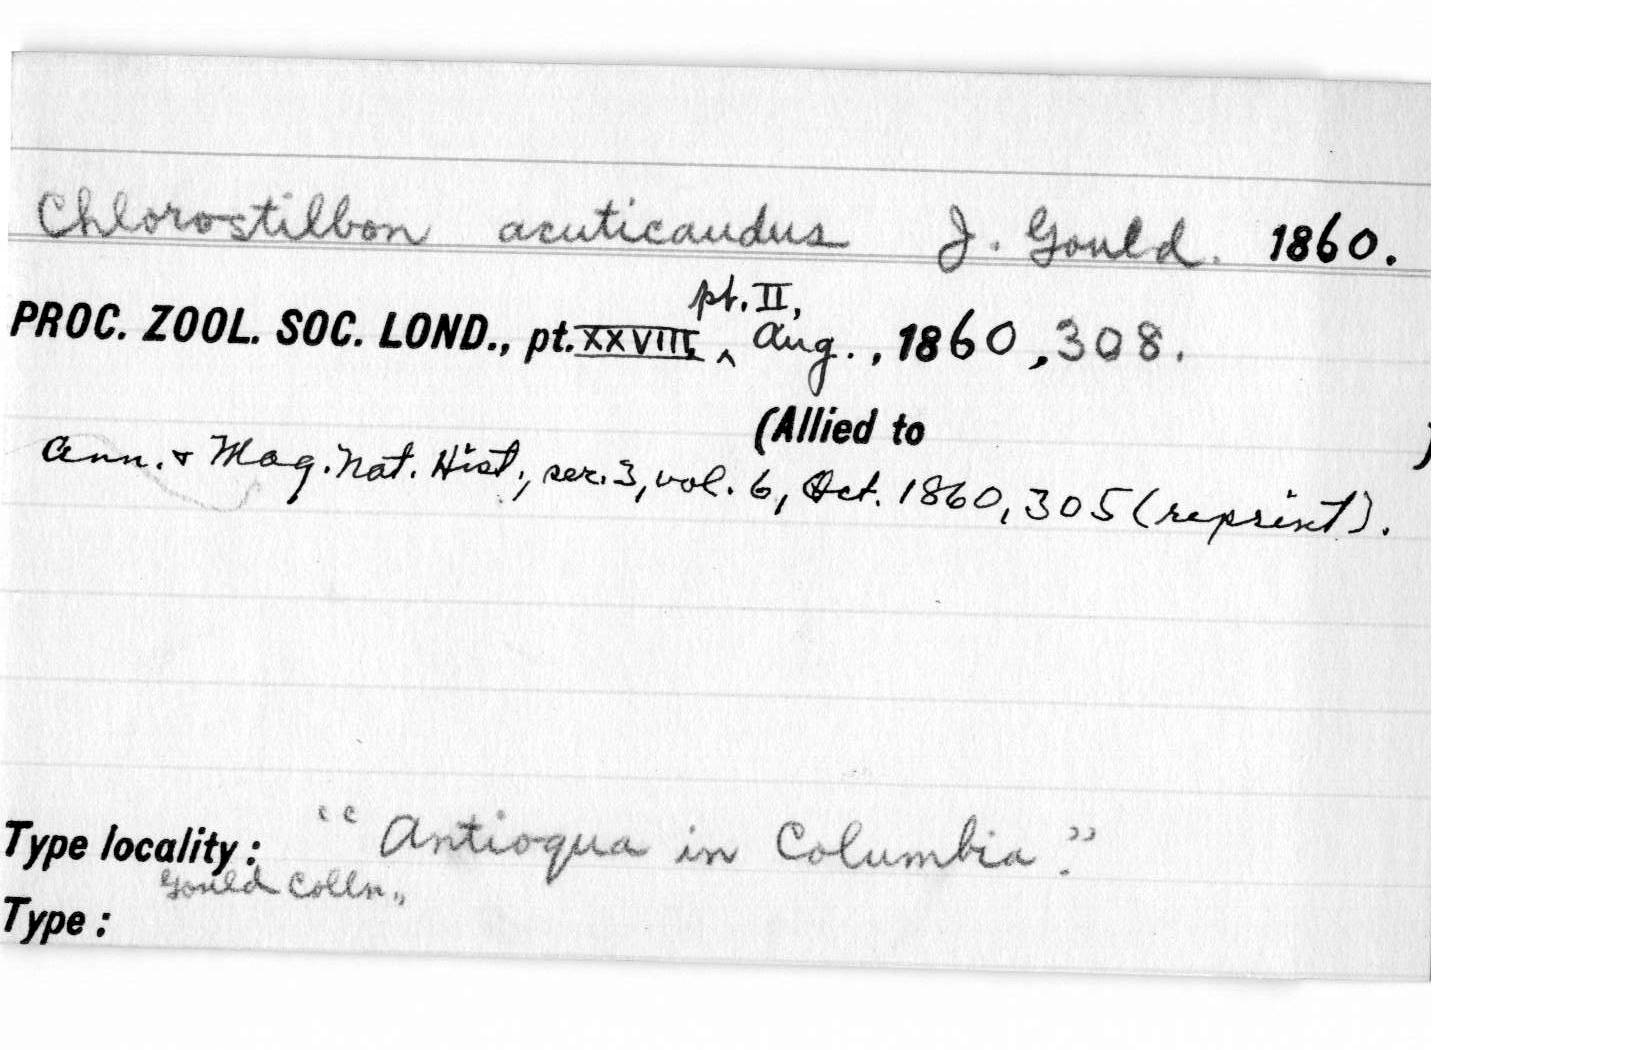 Chlorostilbon acuticaudus J. Gould. 1860.
pt. II,
PROC. ZOOL. SOC. LOND., pt. XXVIII, ^ Aug., 1860, 308.
(Allied to )
Ann. & Mag. Nat. Hist., ser. 3, vol. 6, Oct. 1860, 305 (reprint).
Type locality: "Antioqua in Columbia."
Gould Colln.,
Type: